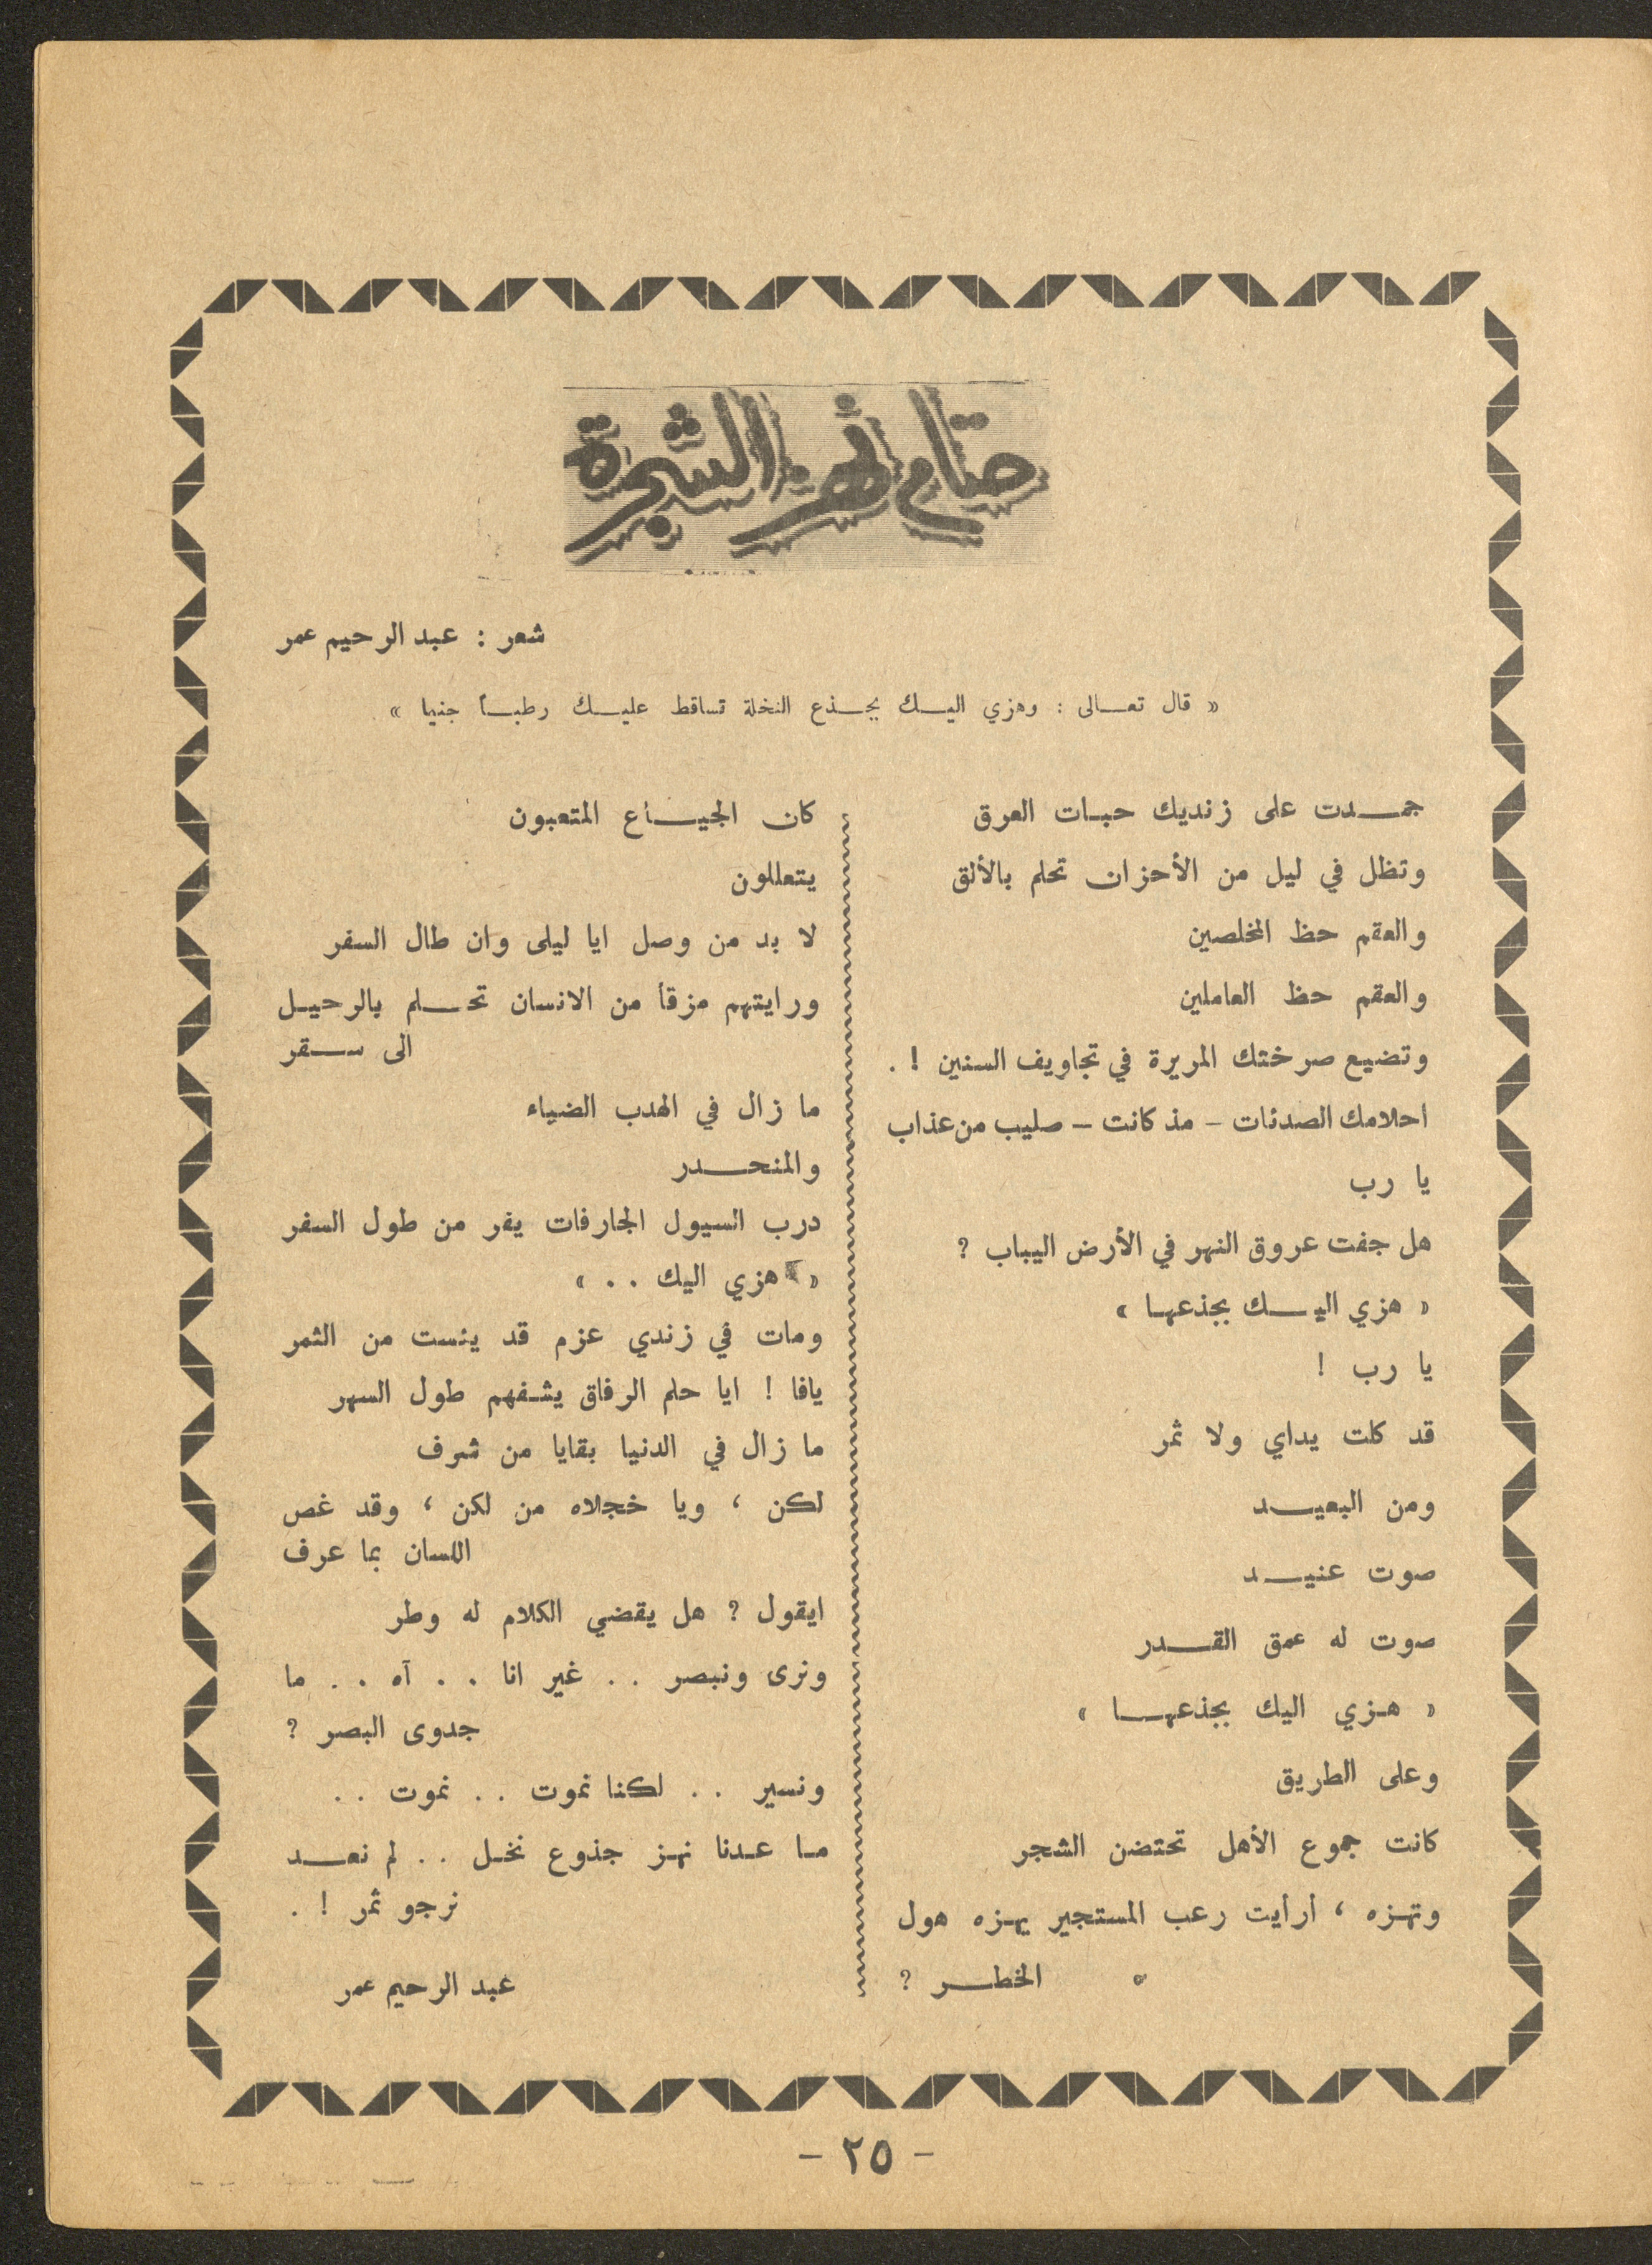 حتام نهز الشجرة
شعر : عبد الرحيم عمر
« قال تعالى : وهزي اليك بجذع النخلة تساقط عليك رطباً جنيا »
جمدت على زنديك حبات العرق
وتظل في ليل من الأحزان تحلم بالألق
والعقم حظ المخلصين
والعقم حظ العاملين
وتضيع صرختك المريرة في تجاويف السنين ! .
احلامك الصدئات – مذ كانت – صليب من عذاب
يا رب
هل جفت عروق النهر في الأرض اليباب ؟
« هزي اليك بجذعها »
يا رب !
قد كلت يداي ولا ثمر
ومن البعيد
صوت عنيد
صوت له عمق القدر
« هزي اليك بجذعها »
وعلى الطريق
كانت جموع الأهل تحتضن الشجر
وتهزه ، أرأيت رعب المستجير يهزه هول
الخطر ؟
كان الجياع المتعبون
يتعللون
لا بد من وصل ايا ليلى وان طال السفر
ورايتهم مزقاً من الانسان تحلم بالرحيل
الى سقر
ما زال في الهدب الضياء
والمنحدر
درب السيول الجارفات يفر من طول السفر
« هزي اليك . . »
ومات في زندي عزم قد يئست من الثمر
يافا ! ايا حلم الرفاق يشفهم طول السهر
ما زال في الدنيا بقايا من شرف
لكن ، ويا خجلاه من لكن ، وقد غص
اللسان بما عرف
ايقول ؟ هل يقضي الكلام له وطر
ونرى ونبصر . . غير انا . . آه . . ما
جدوى البصر ؟
ونسير . . لكنا نموت . . نموت . .
ما عدنا نهز جذوع نخل . . لم نعد
نرجو ثمر ! .
عبد الرحيم عمر
– ٢٥ –